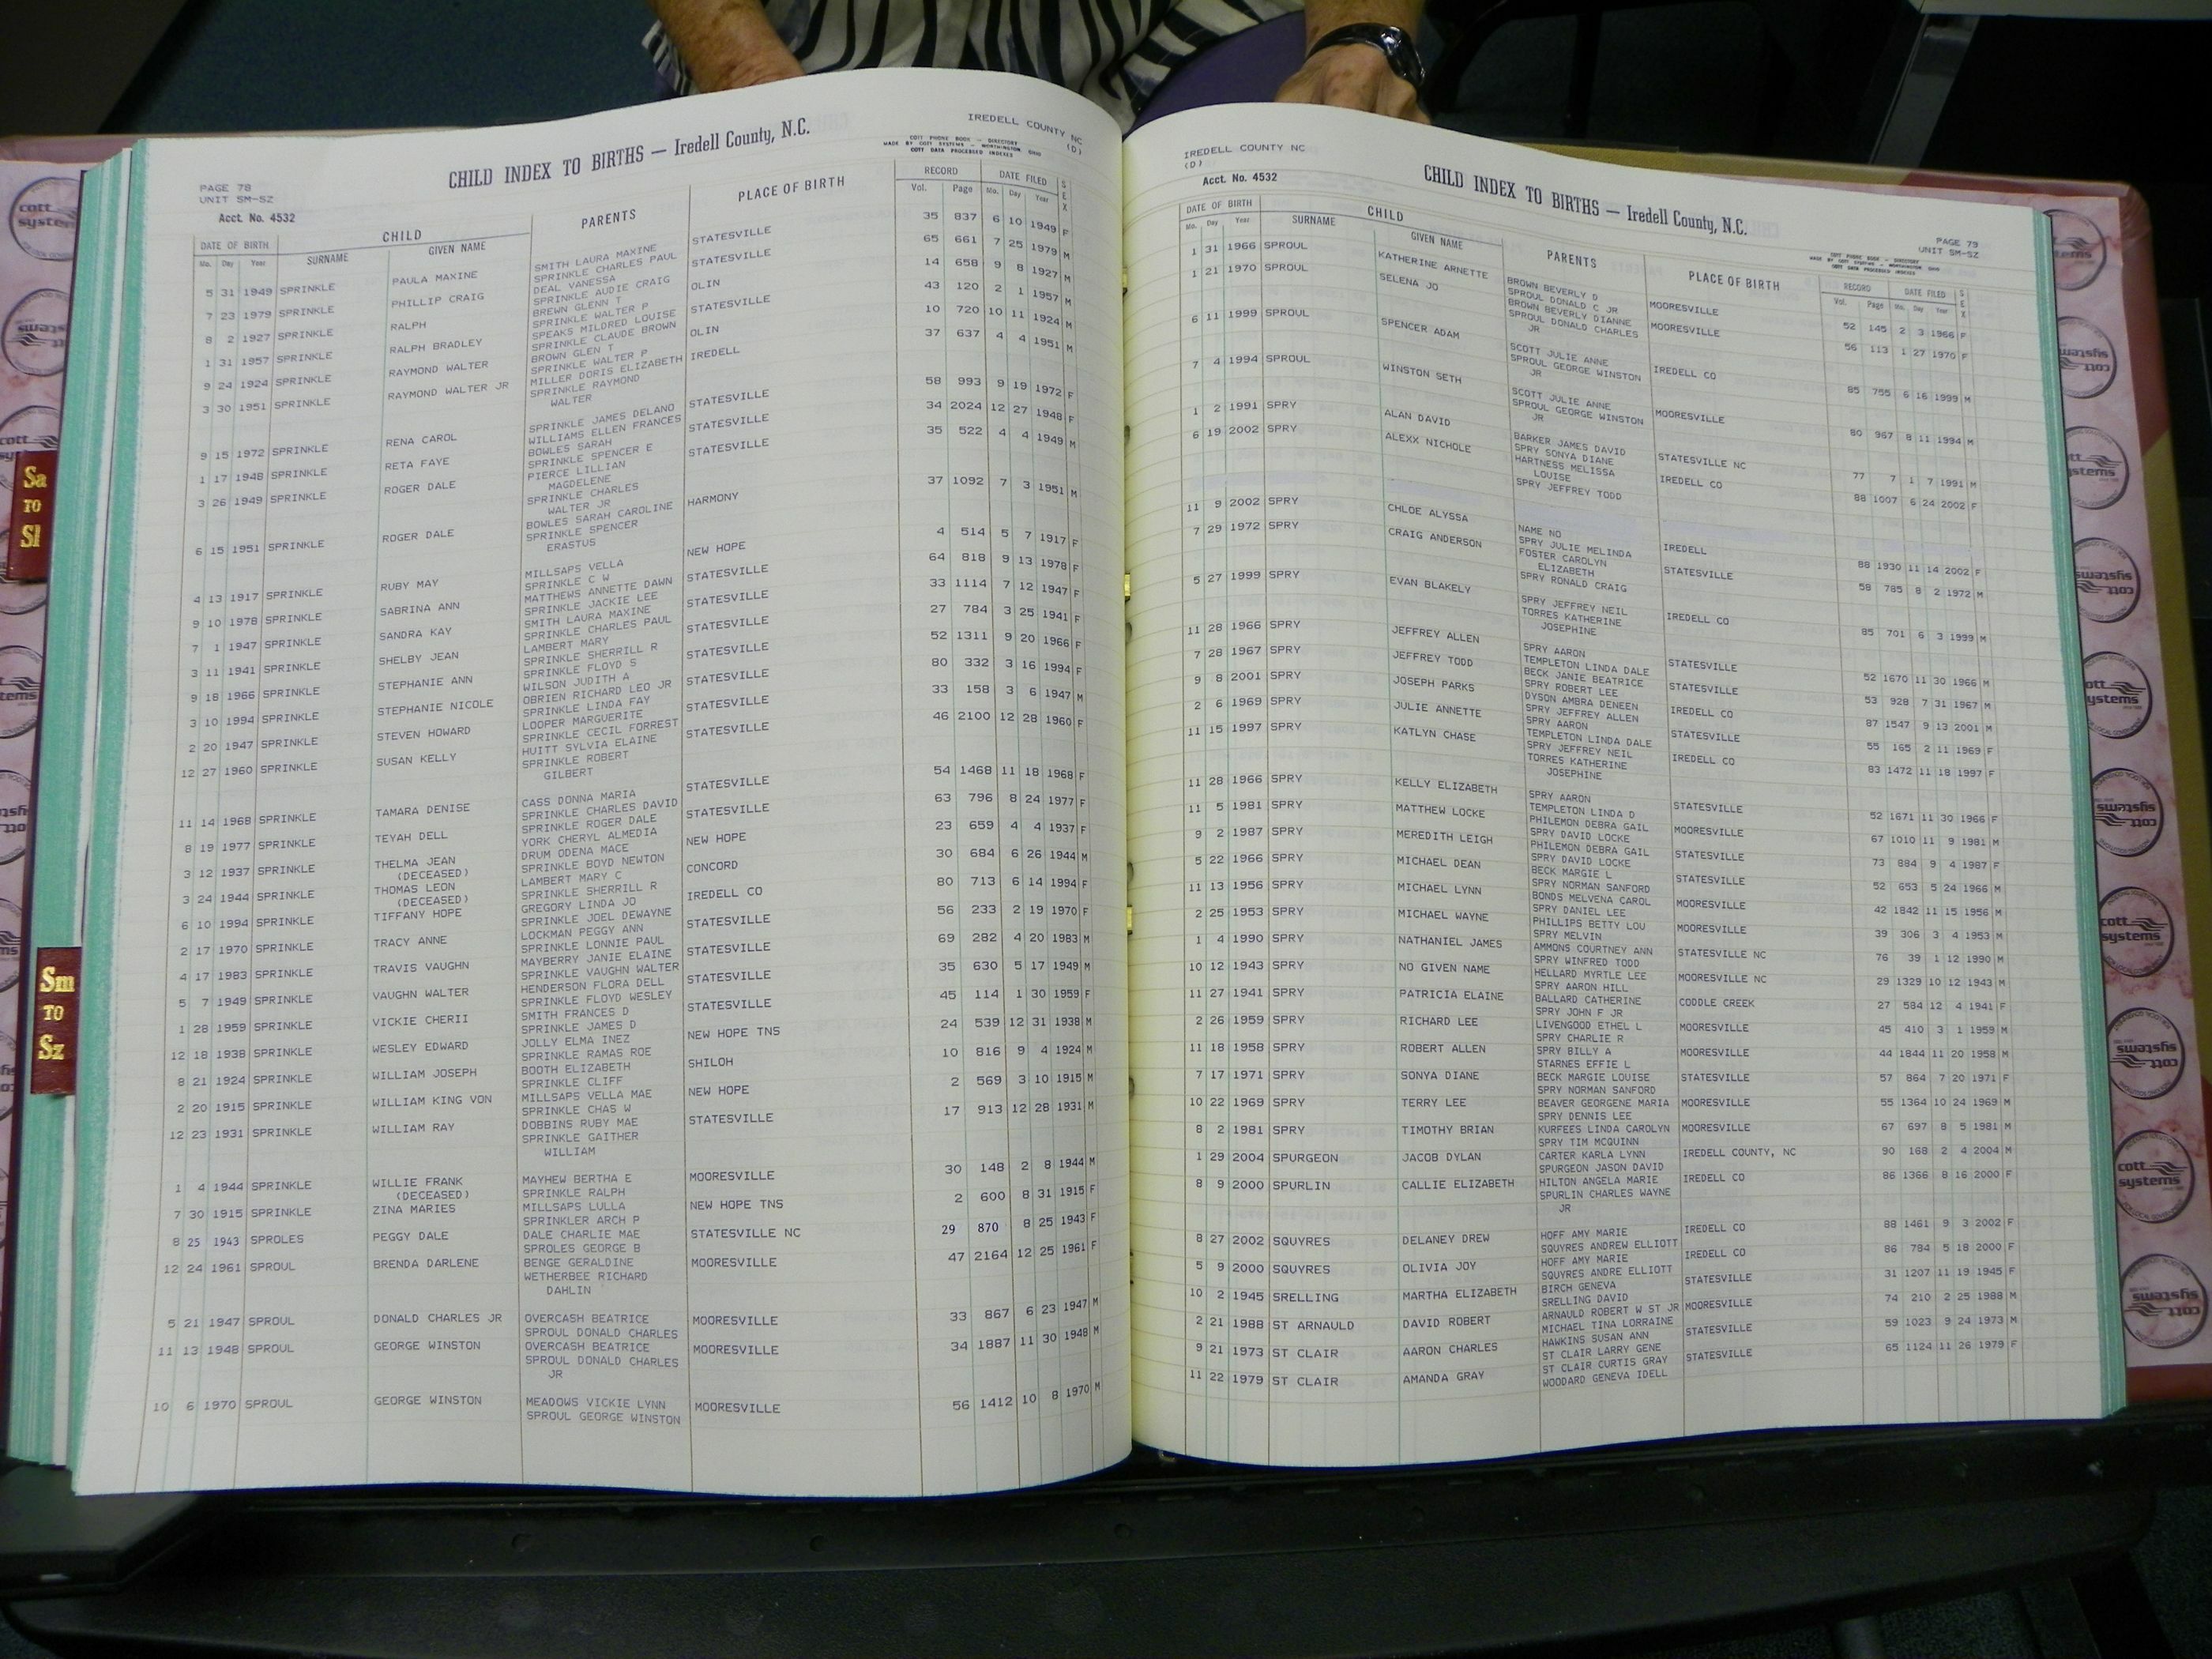 IREDELL COUNTY NC
(D)
CHILD INDEX TO BIRTHS — Iredell County, N.C.
COTT PHONE BOOK - DIRECTORY
MADE BY COTT SYSTEMS - WORTHINGTON OHIO
COTT DATA PROCESSED INDEXES
PAGE 78
UNIT SM-SZ
Acct. No. 4532
DATE OF BIRTH CHILD PARENTS PLACE OF BIRTH RECORD DATE FILED SEX
Mo. Day Year SURNAME GIVEN NAME Vol. Page Mo. Day Year
5 31 1949 SPRINKLE PAULA MAXINE SMITH LAURA MAXINE STATESVILLE 35 837 6 10 1949 F
SPRINKLE CHARLES PAUL
7 23 1979 SPRINKLE PHILLIP CRAIG DEAL VANESSA STATESVILLE 65 661 7 25 1979 M
SPRINKLE AUDIE CRAIG
8 2 1927 SPRINKLE RALPH BREWN GLENN T OLIN 14 658 9 8 1927 M
SPRINKLE WALTER P
1 31 1957 SPRINKLE RALPH BRADLEY SPEAKS MILDRED LOUISE STATESVILLE 43 120 2 1 1957 M
SPRINKLE CLAUDE BROWN
9 24 1924 SPRINKLE RAYMOND WALTER BROWN GLEN T OLIN 10 720 10 11 1924 M
SPRINKLE WALTER P
3 30 1951 SPRINKLE RAYMOND WALTER JR MILLER DORIS ELIZABETH IREDELL 37 637 4 4 1951 M
SPRINKLE RAYMOND
WALTER
9 15 1972 SPRINKLE RENA CAROL SPRINKLE JAMES DELANO STATESVILLE 58 993 9 19 1972 F
WILLIAMS ELLEN FRANCES
1 17 1948 SPRINKLE RETA FAYE BOWLES SARAH STATESVILLE 34 2024 12 27 1948 F
SPRINKLE SPENCER E
3 26 1949 SPRINKLE ROGER DALE PIERCE LILLIAN STATESVILLE 35 522 4 4 1949 M
MAGDELENE
SPRINKLE CHARLES
WALTER JR
6 15 1951 SPRINKLE ROGER DALE BOWLES SARAH CAROLINE HARMONY 37 1092 7 3 1951 M
SPRINKLE SPENCER
ERASTUS
4 13 1917 SPRINKLE RUBY MAY MILLSAPS VELLA NEW HOPE 4 514 5 7 1917 F
SPRINKLE C W
9 10 1978 SPRINKLE SABRINA ANN MATTHEWS ANNETTE DAWN STATESVILLE 64 818 9 13 1978 F
SPRINKLE JACKIE LEE
7 1 1947 SPRINKLE SANDRA KAY SMITH LAURA MAXINE STATESVILLE 33 1114 7 12 1947 F
SPRINKLE CHARLES PAUL
3 11 1941 SPRINKLE SHELBY JEAN LAMBERT MARY STATESVILLE 27 784 3 25 1941 F
SPRINKLE SHERRILL R
9 18 1966 SPRINKLE STEPHANIE ANN SPRINKLE FLOYD S STATESVILLE 52 1311 9 20 1966 F
WILSON JUDITH A
3 10 1994 SPRINKLE STEPHANIE NICOLE OBRIEN RICHARD LEO JR STATESVILLE 80 332 3 16 1994 F
SPRINKLE LINDA FAY
2 20 1947 SPRINKLE STEVEN HOWARD LOOPER MARGUERITE STATESVILLE 33 158 3 6 1947 M
SPRINKLE CECIL FORREST
12 27 1960 SPRINKLE SUSAN KELLY HUITT SYLVIA ELAINE STATESVILLE 46 2100 12 28 1960 F
SPRINKLE ROBERT
GILBERT
11 14 1968 SPRINKLE TAMARA DENISE CASS DONNA MARIA STATESVILLE 54 1468 11 18 1968 F
SPRINKLE CHARLES DAVID
8 19 1977 SPRINKLE TEYAH DELL SPRINKLE ROGER DALE STATESVILLE 63 796 8 24 1977 F
YORK CHERYL ALMEDIA
3 12 1937 SPRINKLE THELMA JEAN DRUM ODENA MACE NEW HOPE 23 659 4 4 1937 F
(DECEASED) SPRINKLE BOYD NEWTON
3 24 1944 SPRINKLE THOMAS LEON LAMBERT MARY C CONCORD 30 684 6 26 1944 M
(DECEASED) SPRINKLE SHERRILL R
6 10 1994 SPRINKLE TIFFANY HOPE GREGORY LINDA JO IREDELL CO 80 713 6 14 1994 F
SPRINKLE JOEL DEWAYNE
2 17 1970 SPRINKLE TRACY ANNE LOCKMAN PEGGY ANN STATESVILLE 56 233 2 19 1970 F
SPRINKLE LONNIE PAUL
4 17 1983 SPRINKLE TRAVIS VAUGHN MAYBERRY JANIE ELAINE STATESVILLE 69 282 4 20 1983 M
SPRINKLE VAUGHN WALTER
5 7 1949 SPRINKLE VAUGHN WALTER HENDERSON FLORA DELL STATESVILLE 35 630 5 17 1949 M
SPRINKLE FLOYD WESLEY
1 28 1959 SPRINKLE VICKIE CHERII SMITH FRANCES D STATESVILLE 45 114 1 30 1959 F
SPRINKLE JAMES D
12 18 1938 SPRINKLE WESLEY EDWARD JOLLY ELMA INEZ NEW HOPE TNS 24 539 12 31 1938 M
SPRINKLE RAMAS ROE
8 21 1924 SPRINKLE WILLIAM JOSEPH BOOTH ELIZABETH SHILOH 10 816 9 4 1924 M
SPRINKLE CLIFF
2 20 1915 SPRINKLE WILLIAM KING VON MILLSAPS VELLA MAE NEW HOPE 2 569 3 10 1915 M
SPRINKLE CHAS W
12 23 1931 SPRINKLE WILLIAM RAY DOBBINS RUBY MAE STATESVILLE 17 913 12 28 1931 M
SPRINKLE GAITHER
WILLIAM
1 4 1944 SPRINKLE WILLIE FRANK MAYHEW BERTHA E MOORESVILLE 30 148 2 8 1944 M
(DECEASED) SPRINKLE RALPH
7 30 1915 SPRINKLE ZINA MARIES MILLSAPS LULLA NEW HOPE TNS 2 600 8 31 1915 F
SPRINKLER ARCH P
8 25 1943 SPROLES PEGGY DALE DALE CHARLIE MAE STATESVILLE NC 29 870 8 25 1943 F
SPROLES GEORGE B
12 24 1961 SPROUL BRENDA DARLENE BENGE GERALDINE MOORESVILLE 47 2164 12 25 1961 F
WETHERBEE RICHARD
DAHLIN
5 21 1947 SPROUL DONALD CHARLES JR OVERCASH BEATRICE MOORESVILLE 33 867 6 23 1947 M
SPROUL DONALD CHARLES
11 13 1948 SPROUL GEORGE WINSTON OVERCASH BEATRICE MOORESVILLE 34 1887 11 30 1948 M
SPROUL DONALD CHARLES
JR
10 6 1970 SPROUL GEORGE WINSTON MEADOWS VICKIE LYNN MOORESVILLE 56 1412 10 8 1970 M
SPROUL GEORGE WINSTON
IREDELL COUNTY NC
(D)
Acct. No. 4532
CHILD INDEX TO BIRTHS — Iredell County, N.C.
PAGE 79
UNIT SM-SZ
COTT PHONE BOOK - DIRECTORY
MADE BY COTT SYSTEMS - WORTHINGTON OHIO
COTT DATA PROCESSED INDEXES
DATE OF BIRTH CHILD PARENTS PLACE OF BIRTH RECORD DATE FILED SEX
Mo. Day Year SURNAME GIVEN NAME Vol. Page Mo. Day Year
1 31 1966 SPROUL KATHERINE ARNETTE BROWN BEVERLY D MOORESVILLE 52 145 2 3 1966 F
SPROUL DONALD C JR
1 21 1970 SPROUL SELENA JO BROWN BEVERLY DIANNE MOORESVILLE 56 113 1 27 1970 F
SPROUL DONALD CHARLES
JR
6 11 1999 SPROUL SPENCER ADAM SCOTT JULIE ANNE IREDELL CO 85 755 6 16 1999 M
SPROUL GEORGE WINSTON
JR
7 4 1994 SPROUL WINSTON SETH SCOTT JULIE ANNE MOORESVILLE 80 967 8 11 1994 M
SPROUL GEORGE WINSTON
JR
1 2 1991 SPRY ALAN DAVID BARKER JAMES DAVID STATESVILLE NC 77 7 1 7 1991 M
SPRY SONYA DIANE
6 19 2002 SPRY ALEXX NICHOLE HARTNESS MELISSA IREDELL CO 88 1007 6 24 2002 F
LOUISE
SPRY JEFFREY TODD
11 9 2002 SPRY CHLOE ALYSSA NAME NO IREDELL 88 1930 11 14 2002 F
SPRY JULIE MELINDA
7 29 1972 SPRY CRAIG ANDERSON FOSTER CAROLYN STATESVILLE 58 785 8 2 1972 M
ELIZABETH
SPRY RONALD CRAIG
5 27 1999 SPRY EVAN BLAKELY SPRY JEFFREY NEIL IREDELL CO 85 701 6 3 1999 M
TORRES KATHERINE
JOSEPHINE
11 28 1966 SPRY JEFFREY ALLEN SPRY AARON STATESVILLE 52 1670 11 30 1966 M
TEMPLETON LINDA DALE
7 28 1967 SPRY JEFFREY TODD BECK JANIE BEATRICE STATESVILLE 53 928 7 31 1967 M
SPRY ROBERT LEE
9 8 2001 SPRY JOSEPH PARKS DYSON AMBRA DENEEN IREDELL CO 87 1547 9 13 2001 M
SPRY JEFFREY ALLEN
2 6 1969 SPRY JULIE ANNETTE SPRY AARON STATESVILLE 55 165 2 11 1969 F
TEMPLETON LINDA DALE
11 15 1997 SPRY KATLYN CHASE SPRY JEFFREY NEIL IREDELL CO 83 1472 11 18 1997 F
TORRES KATHERINE
JOSEPHINE
11 28 1966 SPRY KELLY ELIZABETH SPRY AARON STATESVILLE 52 1671 11 30 1966 F
TEMPLETON LINDA D
11 5 1981 SPRY MATTHEW LOCKE PHILEMON DEBRA GAIL MOORESVILLE 67 1010 11 9 1981 M
SPRY DAVID LOCKE
9 2 1987 SPRY MEREDITH LEIGH PHILEMON DEBRA GAIL STATESVILLE 73 884 9 4 1987 F
SPRY DAVID LOCKE
5 22 1966 SPRY MICHAEL DEAN BECK MARGIE L STATESVILLE 52 653 5 24 1966 M
SPRY NORMAN SANFORD
11 13 1956 SPRY MICHAEL LYNN BONDS MELVENA CAROL MOORESVILLE 42 1842 11 15 1956 M
SPRY DANIEL LEE
2 25 1953 SPRY MICHAEL WAYNE PHILLIPS BETTY LOU MOORESVILLE 39 306 3 4 1953 M
SPRY MELVIN
1 4 1990 SPRY NATHANIEL JAMES AMMONS COURTNEY ANN STATESVILLE NC 76 39 1 12 1990 M
SPRY WINFRED TODD
10 12 1943 SPRY NO GIVEN NAME HELLARD MYRTLE LEE MOORESVILLE NC 29 1329 10 12 1943 M
SPRY AARON HILL
11 27 1941 SPRY PATRICIA ELAINE BALLARD CATHERINE CODDLE CREEK 27 584 12 4 1941 F
SPRY JOHN F JR
2 26 1959 SPRY RICHARD LEE LIVENGOOD ETHEL L MOORESVILLE 45 410 3 1 1959 M
SPRY CHARLIE R
11 18 1958 SPRY ROBERT ALLEN SPRY BILLY A MOORESVILLE 44 1844 11 20 1958 M
STARNES EFFIE L
7 17 1971 SPRY SONYA DIANE BECK MARGIE LOUISE STATESVILLE 57 864 7 20 1971 F
SPRY NORMAN SANFORD
10 22 1969 SPRY TERRY LEE BEAVER GEORGENE MARIA MOORESVILLE 55 1364 10 24 1969 M
SPRY DENNIS LEE
8 2 1981 SPRY TIMOTHY BRIAN KURFEES LINDA CAROLYN MOORESVILLE 67 697 8 5 1981 M
SPRY TIM MCQUINN
1 29 2004 SPURGEON JACOB DYLAN CARTER KARLA LYNN IREDELL COUNTY, NC 90 168 2 4 2004 M
SPURGEON JASON DAVID
8 9 2000 SPURLIN CALLIE ELIZABETH HILTON ANGELA MARIE IREDELL CO 86 1366 8 16 2000 F
SPURLIN CHARLES WAYNE
JR
8 27 2002 SQUYRES DELANEY DREW HOFF AMY MARIE IREDELL CO 88 1461 9 3 2002 F
SQUYRES ANDREW ELLIOTT
5 9 2000 SQUYRES OLIVIA JOY HOFF AMY MARIE IREDELL CO 86 784 5 18 2000 F
SQUYRES ANDRE ELLIOTT
10 2 1945 SRELLING MARTHA ELIZABETH BIRCH GENEVA STATESVILLE 31 1207 11 19 1945 F
SRELLING DAVID
2 21 1988 ST ARNAULD DAVID ROBERT ARNAULD ROBERT W ST JR MOORESVILLE 74 210 2 25 1988 M
MICHAEL TINA LORRAINE
9 21 1973 ST CLAIR AARON CHARLES HAWKINS SUSAN ANN STATESVILLE 59 1023 9 24 1973 M
ST CLAIR LARRY GENE
11 22 1979 ST CLAIR AMANDA GRAY ST CLAIR CURTIS GRAY STATESVILLE 65 1124 11 26 1979 F
WOODARD GENEVA IDELL
Sa
TO
Sl
Sm
TO
Sz
cott
systems